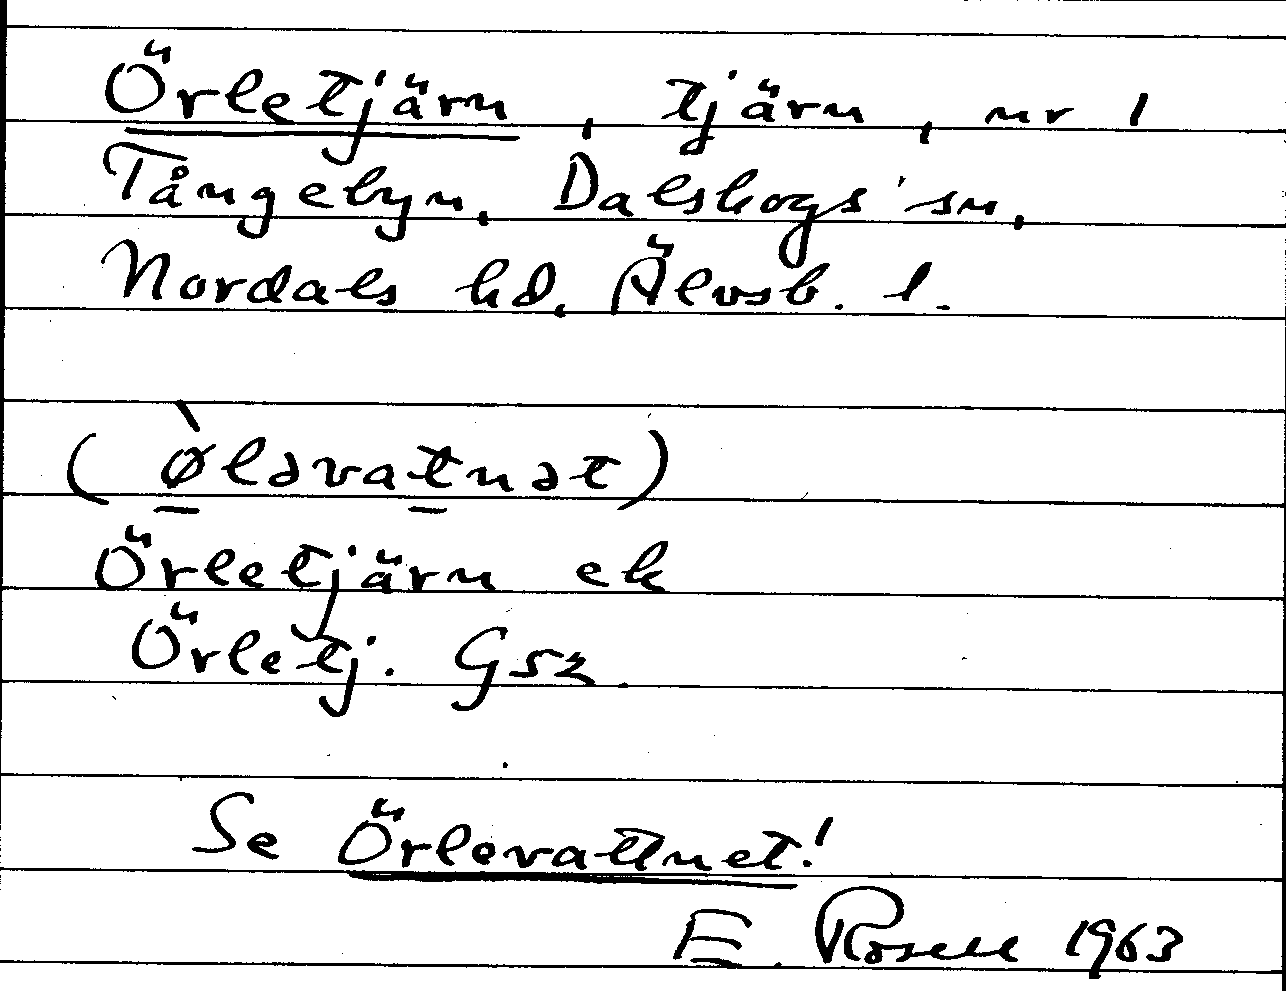 Örletjärn, tjärn, nr 1
Tångebyn, Dalskogs sn,
Nordals hd. Älvsb. l.
(ø̀ləvatnət)
Örletjärn ek
Örletj. Gsz.
Se Örlevattnet!
E. Rosell 1963